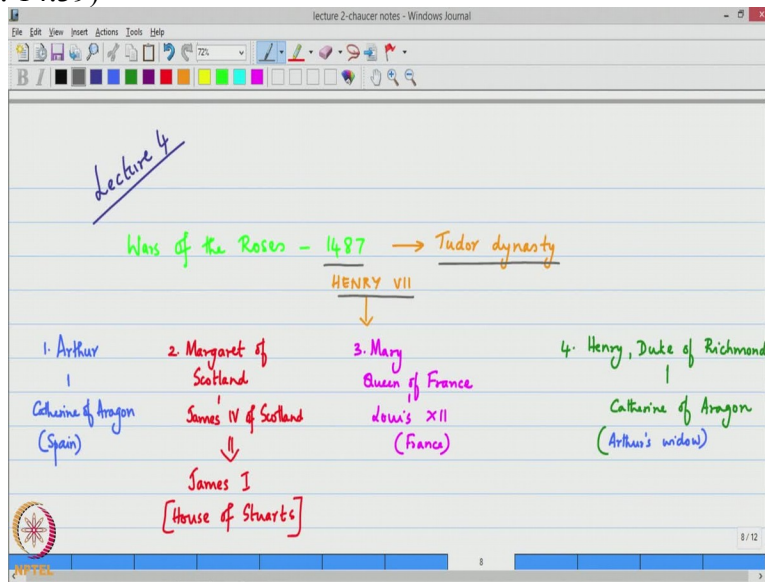 : 14:39)
lecture 2-chaucer notes - Windows Journal
File Edit View Insert Actions Tools Help
72%
B I
Lecture 4
Wars of the Roses - 1487 → Tudor dynasty
HENRY VII
1. Arthur
Catherine of Aragon
(Spain)
2. Margaret of
Scotland
James IV of Scotland
James I
[House of Stuarts]
3. Mary
Queen of France
Louis XII
(France)
4. Henry, Duke of Richmond
Catherine of Aragon
(Arthur's widow)
8/12
8
NPTEL